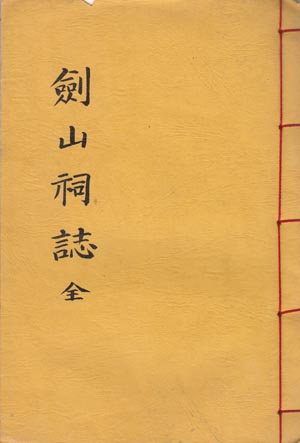 劍山祠誌全